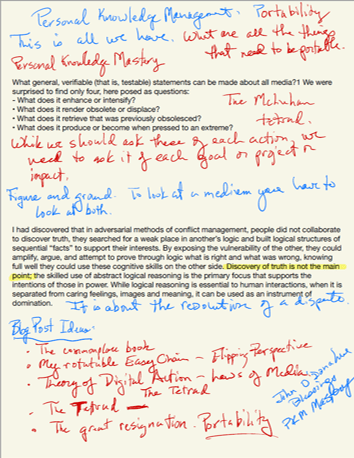 Personal Knowledge Management. Portability
This is all we have. What are all the things
that need to be portable.
Personal Knowledge Mastery
What general, verifiable (that is, testable) statements can be made about all media?1 We were
surprised to find only four, here posed as questions:
- What does it enhance or intensify?
- What does it render obsolete or displace?
- What does it retrieve that was previously obsolesced?
- What does it produce or become when pressed to an extreme?
The McLuhan
tetrad.
While we should ask these of each action, we
need to ask it of each goal or project or
impact.
Figure and ground. To look at a medium you have to
look at both.
I had discovered that in adversarial methods of conflict management, people did not collaborate
to discover truth, they searched for a weak place in another's logic and built logical structures of
sequential "facts" to support their interests. By exposing the vulnerability of the other, they could
amplify, argue, and attempt to prove through logic what is right and what was wrong, knowing
full well they could use these cognitive skills on the other side. Discovery of truth is not the main
point; the skilled use of abstract logical reasoning is the primary focus that supports the
intentions of those in power. While logical reasoning is essential to human interactions, when it is
separated from caring feelings, images and meaning, it can be used as an instrument of
domination.
It is about the resolution of a dispute.
Blog Post Ideas:
• The commonplace book
• My rotatable Easy Chair – Flipping Perspective
• Theory of Digital Action – Laws of Media
The Tetrad
• The Tetrad
• The grant resignation. Portability
John O'Donohue
Blessings
PKM Mastery